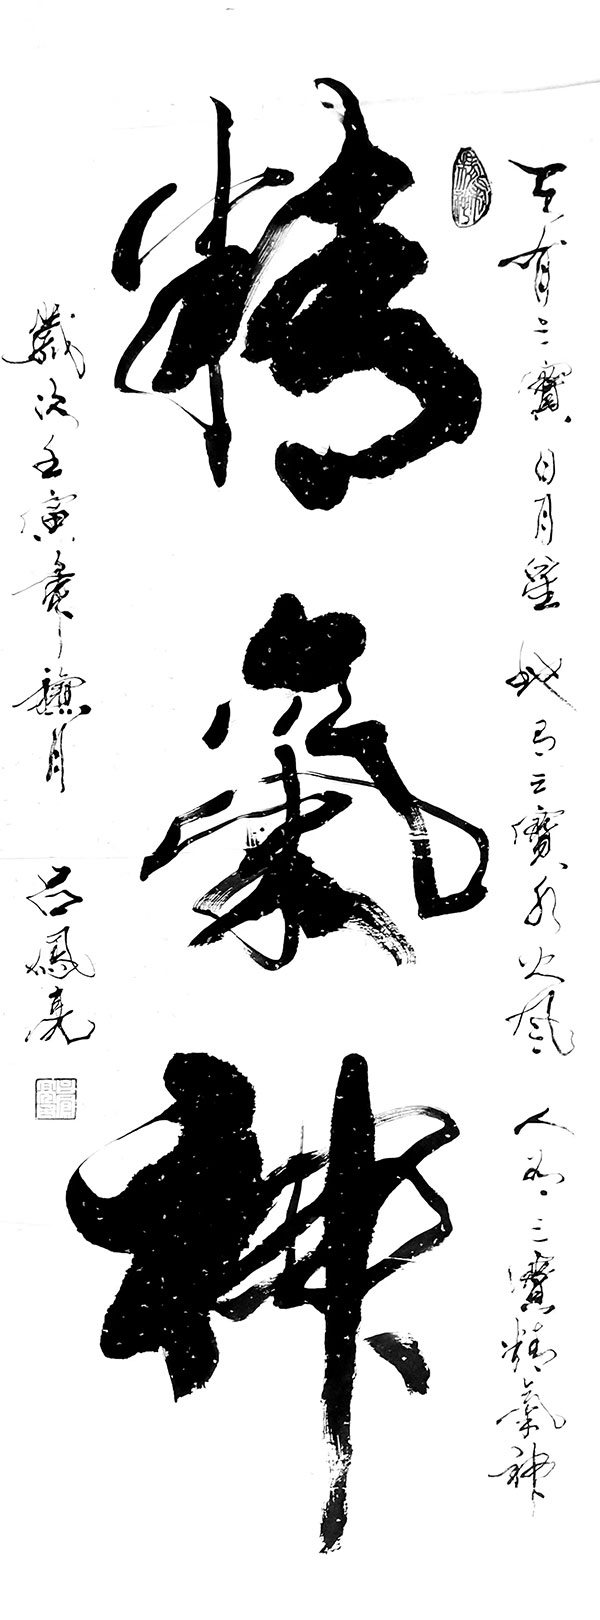 天有三寶日月星 地有三寶水火風 人有三寶精氣神
精氣神
歲次壬寅年
月
呂鳳亮